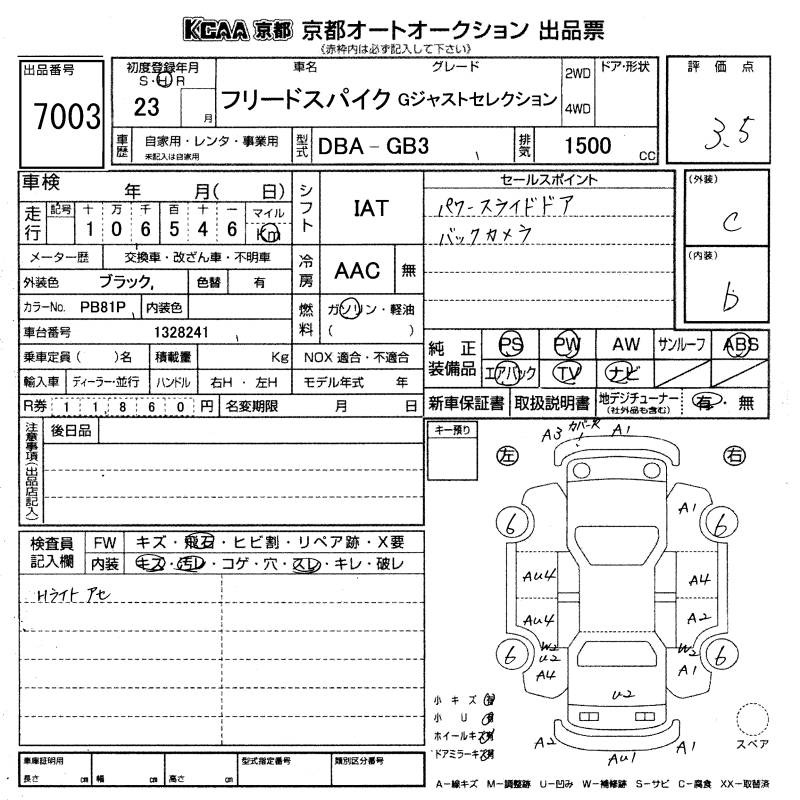 KCAA 京都 京都オートオークション 出品票
《赤枠内は必ず記入して下さい》
出品番号
7003
初度登録年月
S・H・R
23 月
車名 グレード
フリードスパイク Gジャストセレクション
2WD
4WD
ドア・形状
評価点
3.5
車歴
自家用・レンタ・事業用
未記入は自家用
型式
DBA-GB3
排気
1500 CC
車検 年 月( 日)
走行
記号 十 万 千 百 十 一 マイル
1 0 6 5 4 6 Km
シフト
IAT
セールスポイント
パワースライドドア
バックカメラ
(外装)
C
(内装)
b
メーター歴 交換車・改ざん車・不明車
外装色 ブラック 色替 有
冷房
AAC 無
カラーNo. PB81P 内装色
燃料
ガソリン・軽油
( )
車台番号 1328241
乗車定員( )名 積載量 Kg NOX 適合・不適合
輸入車 ディーラー・並行 ハンドル 右H・左H モデル年式 年
R券 11860円 名変期限 月 日
純正装備品
PS PW AW サンルーフ ABS
エアバック TV ナビ
新車保証書 取扱説明書 地デジチューナー 有・無
(社外品も含む)
注意事項(出品店記入)
後日品
キー預り
左 右
A3 カバー欠 A1
A1
6 6
AU4 A4
AU4 A2
W2 W2
U2
6 6
A4 A1
U2
A2 AU1 A1
検査員記入欄
FW キズ・飛石・ヒビ割・リペア跡・X要
内装 キズ・汚レ・コゲ・穴・スレ・キレ・破レ
Hライト アセ
小キズ
小U
ホイールキズ
ドアミラーキズ
スペア
車庫証明用
長さ cm 幅 cm 高さ cm
型式指定番号
類別区分番号
A−線キズ M−調整跡 U−凹み W−補修跡 S−サビ C−腐食 XX−取替済